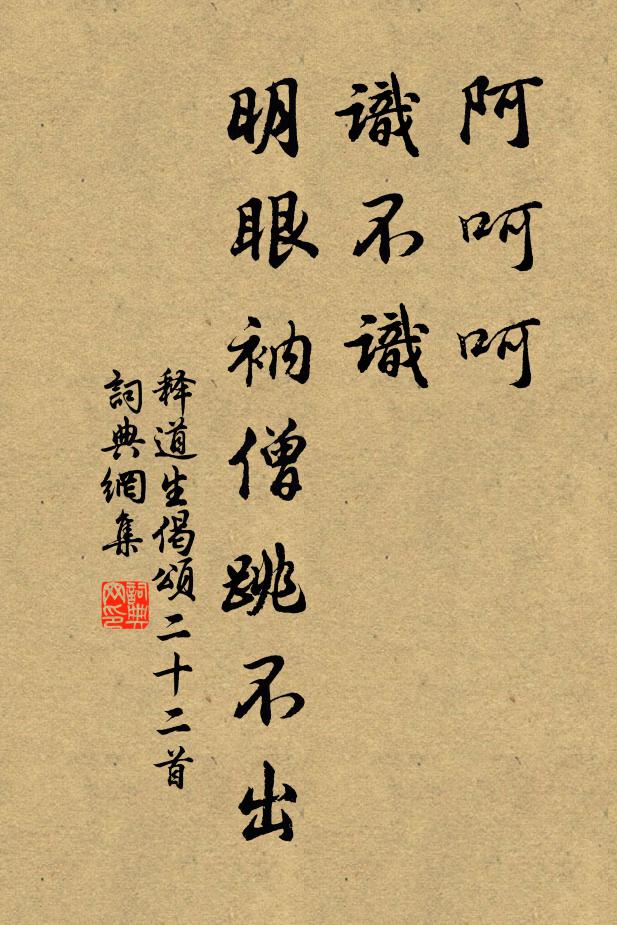 阿呵呵
識不識
明眼衲僧跳不出
释道生偈頌二十二首
詞典網集
詞典网印